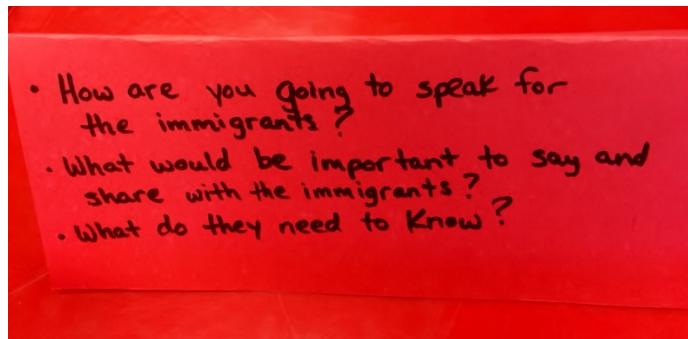 • How are you going to speak for
the immigrants?
• What would be important to say and
share with the immigrants?
• What do they need to know?